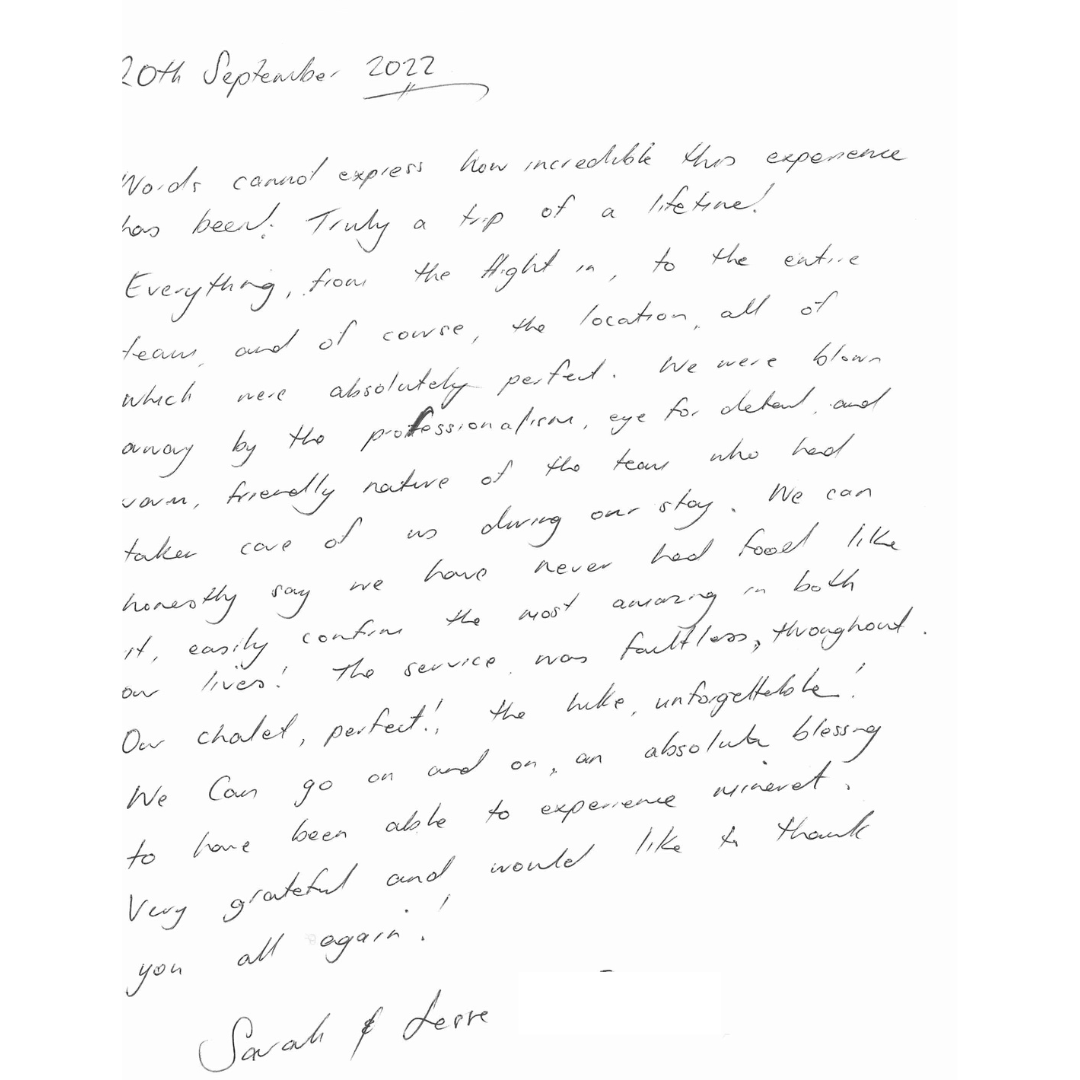 20th September 2022
Words cannot express how incredible this experience
has been! Truly a trip of a lifetime!
Everything, from the flight in, to the entire
team, and of course, the location, all of
which were absolutely perfect. We were blown
away by the professionalism, eye for detail, and
warm, friendly nature of the team who had
taken care of us during our stay. We can
honestly say we have never had food like
it, easily confirm the most amazing in both
our lives! The service was faultless, throughout.
Our chalet, perfect!, the hike, unforgettable!
We Can go on and on, an absolute blessing
to have been able to experience mineret.
Very grateful and would like to thank
you all again!
Sarah &